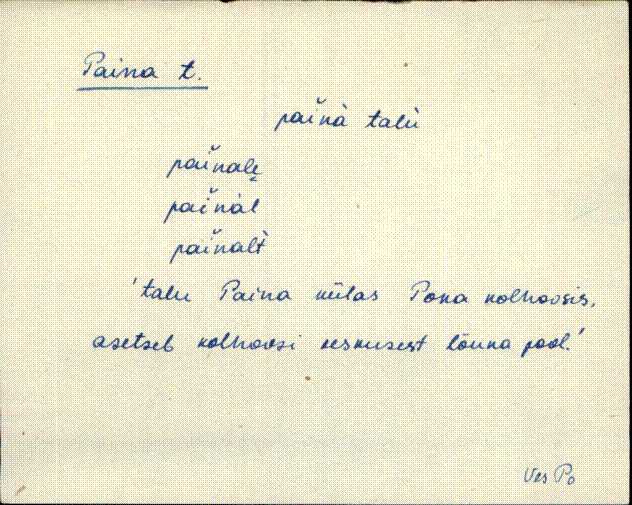 Paina t.
pai̯nà talù
pai̯nalȩ
pai̯nàl
pai̯nalt̀
'talu Paina külas Poka kolhoosis,
asetseb kolhoosi keskusest lõuna pool.'
Ves Po